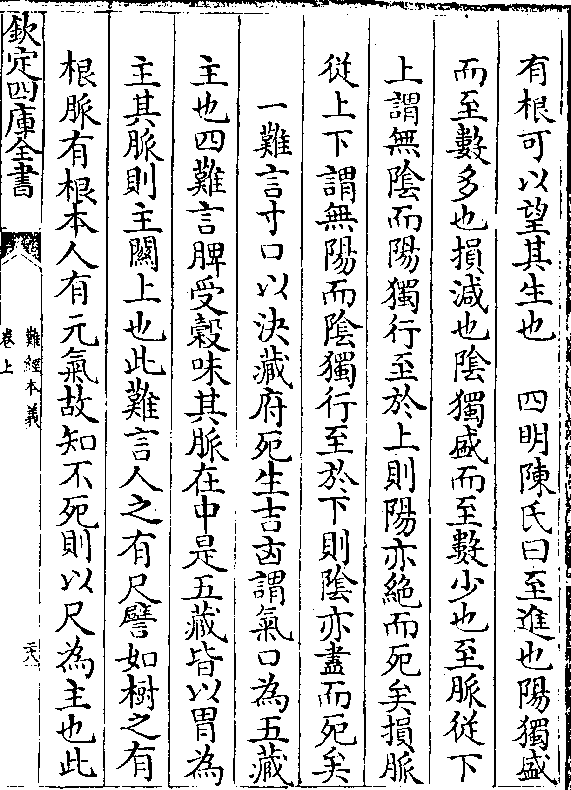 有根可以望其生也　四明陳氏曰至進也陽獨盛
而至數多也損減也陰獨盛而至數少也至脈從下
上謂無陰而陽獨行至於上則陽亦絶而死矣損脈
從上下謂無陽而陰獨行至於下則陰亦盡而死矣
一難言寸口以決藏府死生吉凶謂氣口為五藏
主也四難言脾受穀味其脈在中是五藏皆以胃為
主其脈則主關上也此難言人之有尺譬如樹之有
根脈有根本人有元氣故知不死則以尺為主也此
欽定四庫全書
難經本義
卷上
二十八